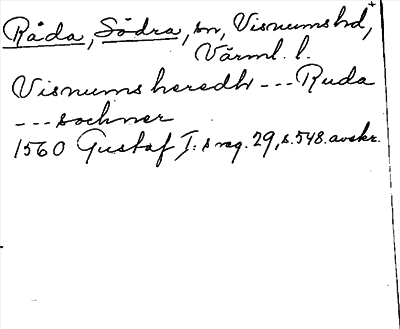 Råda, Södra, sn, Visnums hd,+
Värml. l.
Visnums heredh --- Ruda
--- sochner
1560 Gustaf I:s reg. 29, s. 548. avskr.